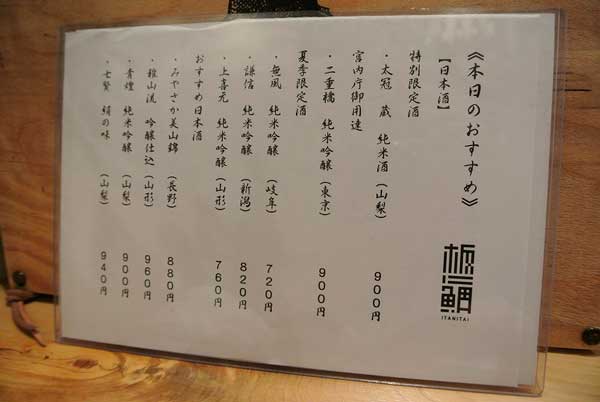 《本日のおすすめ》
【日本酒】
特別限定酒
・太冠 蔵 純米酒(山梨) 900円
宮内庁御用達
・二重橋 純米吟醸(東京) 900円
夏季限定酒
・無風 純米吟醸(岐阜) 720円
・謙信 純米吟醸(新潟) 820円
・上喜元 純米吟醸(山形) 760円
おすすめ日本酒
・みやさか美山錦(長野) 880円
・雅山流 吟醸仕込(山形) 960円
・青煌 純米吟醸(山梨) 900円
・七賢 絹の味(山梨) 940円
ITANITAI